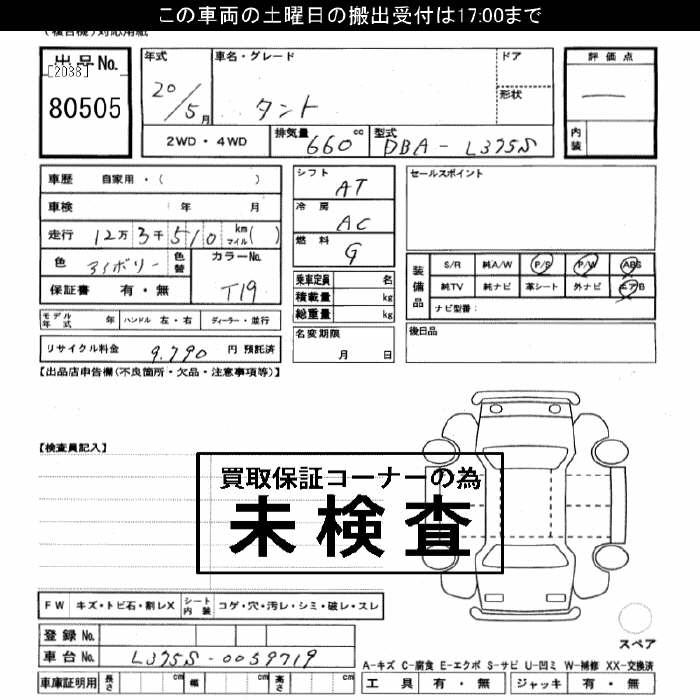 この車両の土曜日の搬出受付は17:00まで
(複合機)対応用紙
出品No.
[2038]
80505
年式
車名・グレード
ドア
評価点
20/5月
タント
形状
内装
2WD・4WD
排気量
660
cc
型式
DBA-L375S
車歴 自家用・( )
シフト
AT
セールスポイント
車検 年 月
冷房
AC
走行 12万3千510 km マイル( )
燃料
G
色
アイボリー
色替
カラーNo.
T19
装備品
S/R 純A/W P/S P/W ABS
純TV 純ナビ 革シート 外ナビ エアB
ナビ型番:
保証書 有・無
乗車定員 名
積載量 kg
総重量 kg
モデル年式 年 ハンドル 左・右 ディーラー・並行
名変期限
月 日
後日品
リサイクル料金 9,790 円 預託済
【出品店申告欄(不良箇所・欠品・注意事項等)】
【検査員記入】
買取保証コーナーの為
未検査
FW キズ・トビ石・割レX シート内装 コゲ・穴・汚レ・シミ・破レ・スレ
登録No.
車台No. L375S-0059719
スペア
A-キズ C-腐食 E-エクボ S-サビ U-凹ミ W-補修 XX-交換済
車庫証明用 長さ cm 幅 cm 高さ cm
工具 有・無 ジャッキ 有・無